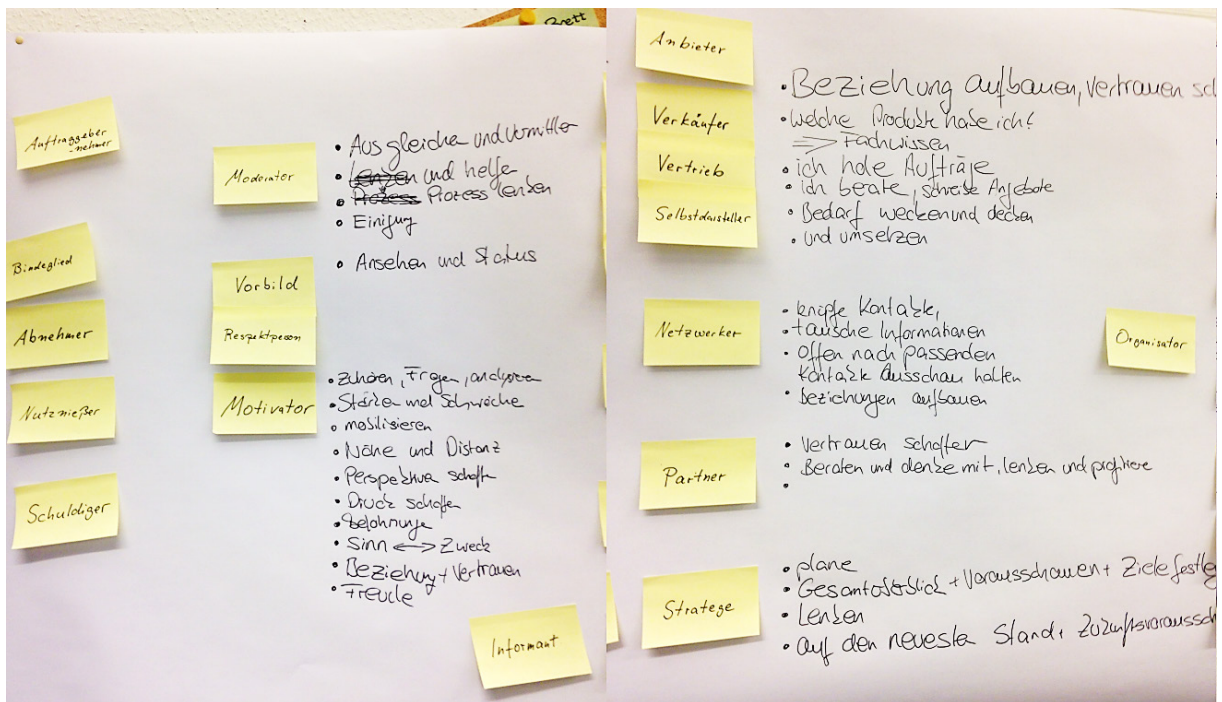 Brett
Auftraggeber
-nehmer
Bindeglied
Abnehmer
Nutznießer
Schuldiger
Moderator
• Ausgleichen und Vermittler
• und helfe
• Prozess lenken
• Einigung
Vorbild
Respektperson
• Ansehen und Status
Motivator
• Zuhören, Fragen, analysieren
• Stärken und Schwäche
• mobilisieren
• Nähe und Distanz
• Perspektive schaffe
• Druck schaffen
• Belohnung
• Sinn <-> Zweck
• Beziehung + Vertrauen
• Freude
Informant
Anbieter
Verkäufer
Vertrieb
Selbstdarsteller
• Beziehung aufbauen, Vertrauen sc
• welche Produkte habe ich?
=> Fachwissen
• ich hole Aufträge
• ich berate, schreibe Angebote
• Bedarf wecken und decken
• und umsetzen
Netzwerker
• knüpfe Kontakte,
• tausche Informationen
• Offen nach passenden
Kontakte Ausschau halten
• Beziehungen aufbauen
Organisator
Partner
• Vertrauen schaffen
• Beraten und denke mit, lenken und profitiere
•
Stratege
• plane
• Gesamtüberblick + Vorausschauen + Ziele festle
• Lenken
• auf den neuesten Stand + Zukunftsvoraussch